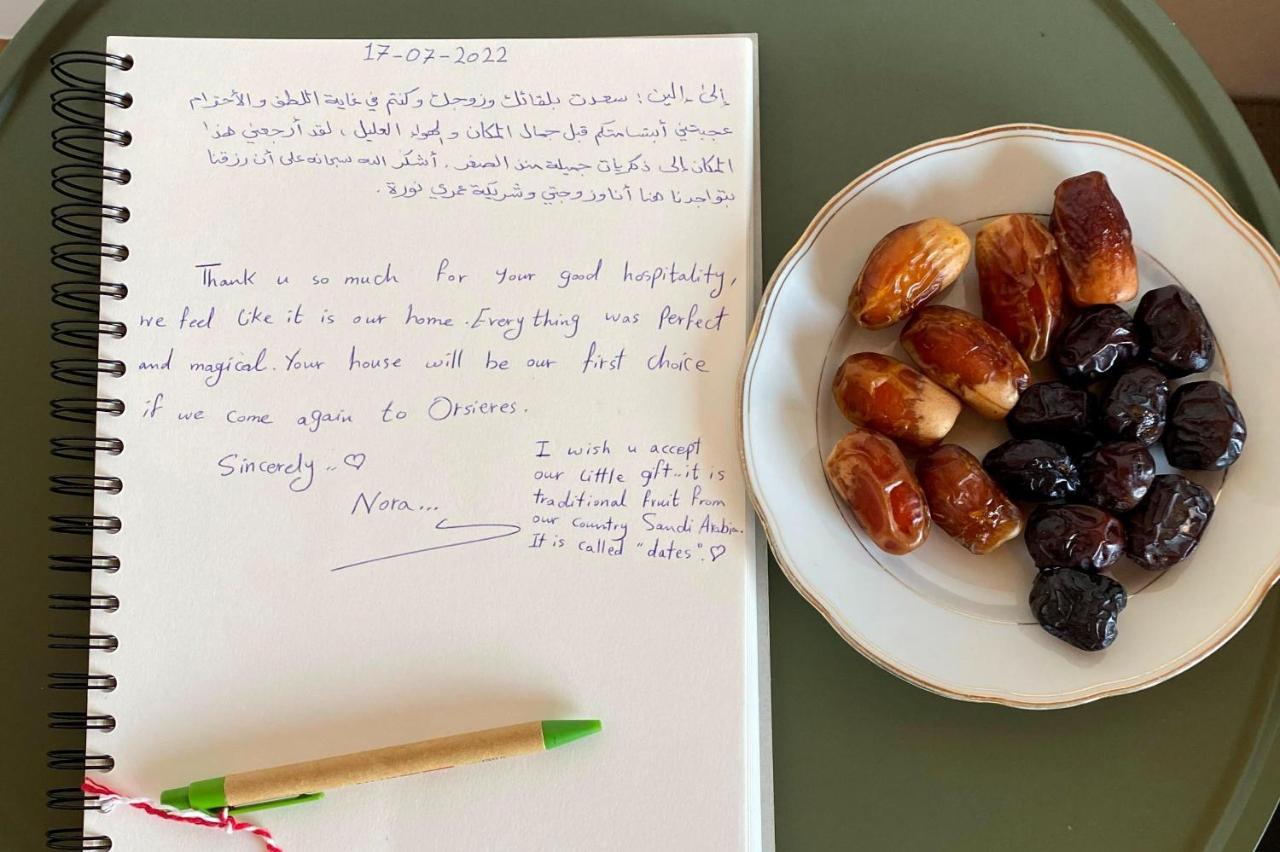 17-07-2022
إلى إلين : سعدت بلقائك وزوجك وكنتم في غاية اللطف والأحترام
عجبتني أبتسامتكم قبل جمال المكان والهواء العليل ، لقد أرجعني هذا
المكان إلى ذكريات جميلة منذ الصغر . أشكر الله سبحانه على أن رزقنا
بتواجدنا هنا أنا وزوجتي وشريكة عمري نورة .
Thank u so much for your good hospitality,
we feel like it is our home. Everything was perfect
and magical. Your house will be our first choice
if we come again to Orsieres.
Sincerely .. ♡
Nora...
I wish u accept
our little gift.. it is
traditional fruit from
our country Saudi Arabia.
It is called "dates". ♡